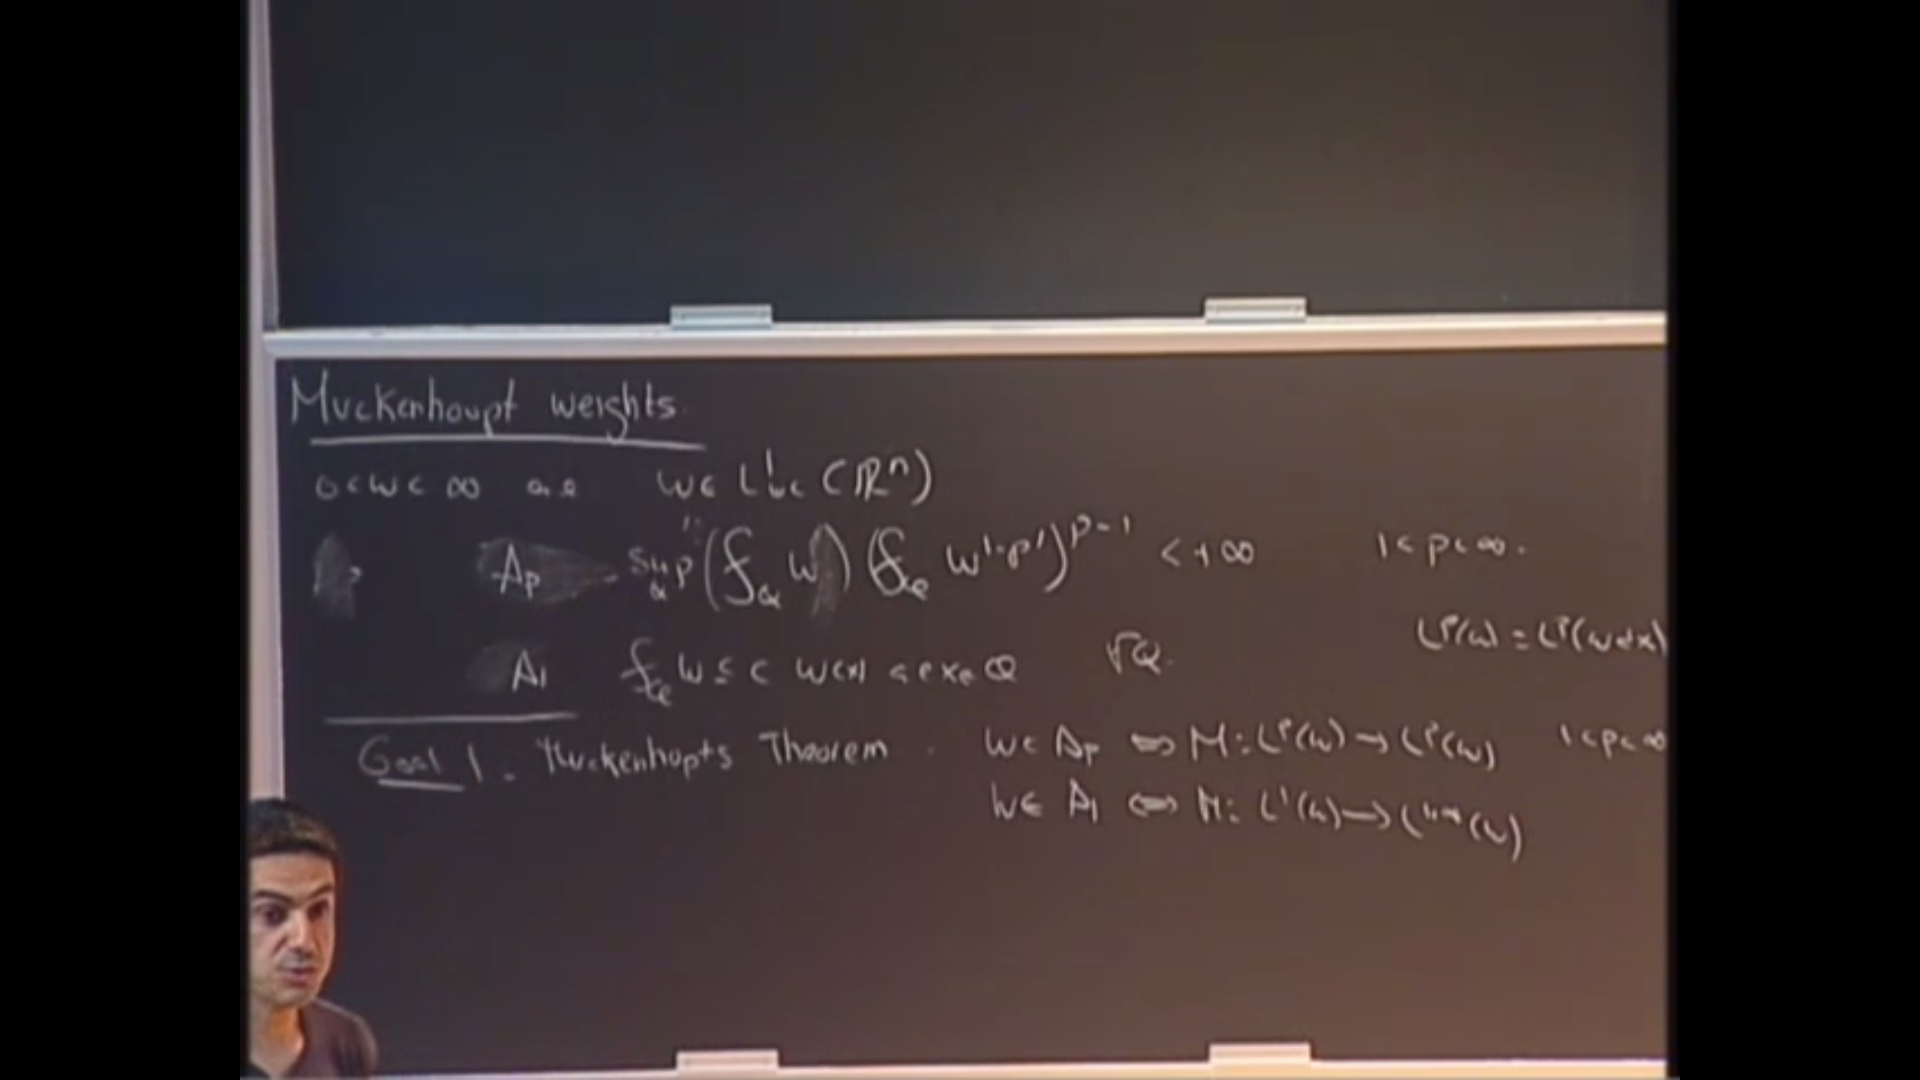 Muckenhoupt weights.
0<w<∞ a.e w∈ L¹loc (ℝⁿ)
Ap sup_Q (⨍_Q w) (⨍_Q w^{1-p'})^{p-1} < +∞ 1<p<∞.
L^p(w) = L^p(wdx)
A₁ ⨍_Q w ≤ C w(x) a e x∈Q ∀Q.
Goal 1. Muckenhopts Theorem. w∈ Ap ⇔ M: L^p(w) → L^p(w) 1<p<∞
w∈ A₁ ⇔ M: L¹(w) → L^{1,∞}(w)